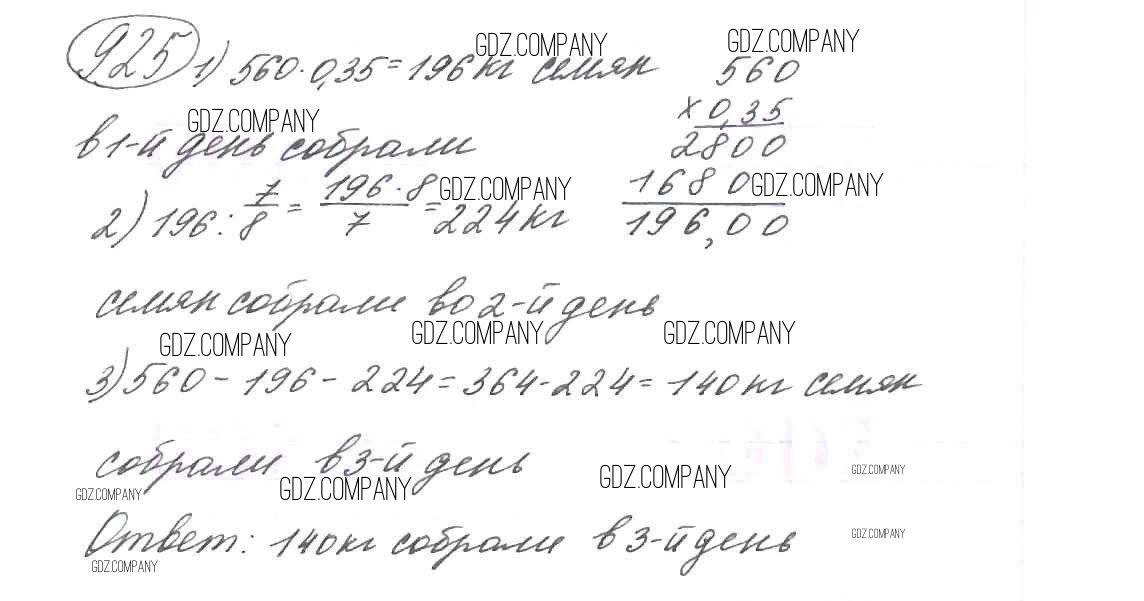 925 1) 560·0,35=196 кг семян
в 1-й день собрали
2) 196 : 7/8 = 196·8/7 = 224 кг
семян собрали во 2-й день
3) 560 - 196 - 224 = 364 - 224 = 140 кг семян
собрали в 3-й день
Ответ: 140 кг собрали в 3-й день
560
× 0,35
2800
1680
196,00
GDZ.COMPANY
GDZ.COMPANY
GDZ.COMPANY
GDZ.COMPANY
GDZ.COMPANY
GDZ.COMPANY
GDZ.COMPANY
GDZ.COMPANY
GDZ.COMPANY
GDZ.COMPANY
GDZ.COMPANY
GDZ.COMPANY
GDZ.COMPANY
GDZ.COMPANY